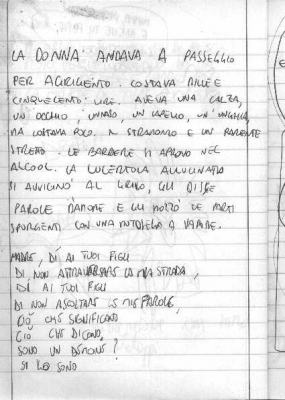 LA DONNA ANDAVA A PASSEGGIO
PER AGRIGENTO. COSTAVA MILLE E
CINQUECENTO LIRE. AVEVA UNA CALZA,
UN OCCHIO, UN NASO, UN CAPELLO, UN'UNGHIA,
MA COSTAVA POCO. N STRANDOMO E UN PARENTE
STRETTO. LE BARBERE SI APRONO NEL
ALCOOL. LA LUCERTOLA ALLUCINATA
SI AVVICINÒ AL GRILLO, GLI DISSE
PAROLE D'AMORE E GLI MOZZÒ LE PARTI
SPORGENTI CON UNA MOTOSEGA A VAPORE.
MADRE, DÌ AI TUOI FIGLI
DI NON ATTRAVERSARE LA MIA STRADA,
DÌ AI TUOI FIGLI
DI NON ASCOLTARE LE MIE PAROLE,
CIÒ CHE SIGNIFICANO
CIÒ CHE DICONO,
SONO UN DEMONE?
SI LO SONO